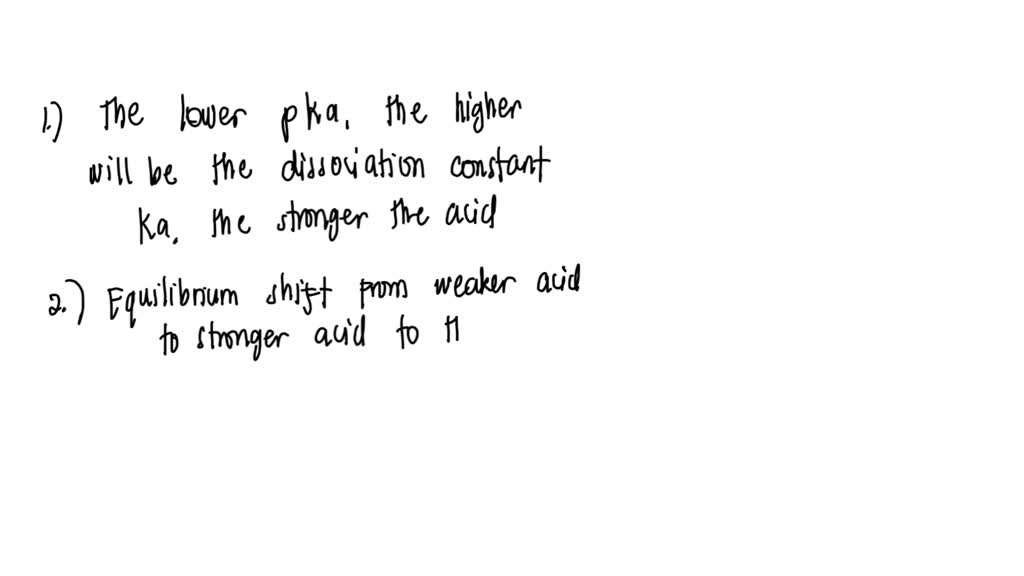 1.) The lower pka, the higher
will be the dissociation constant
Ka, the stronger the acid
2.) Equilibrium shift from weaker acid
to stronger acid to H